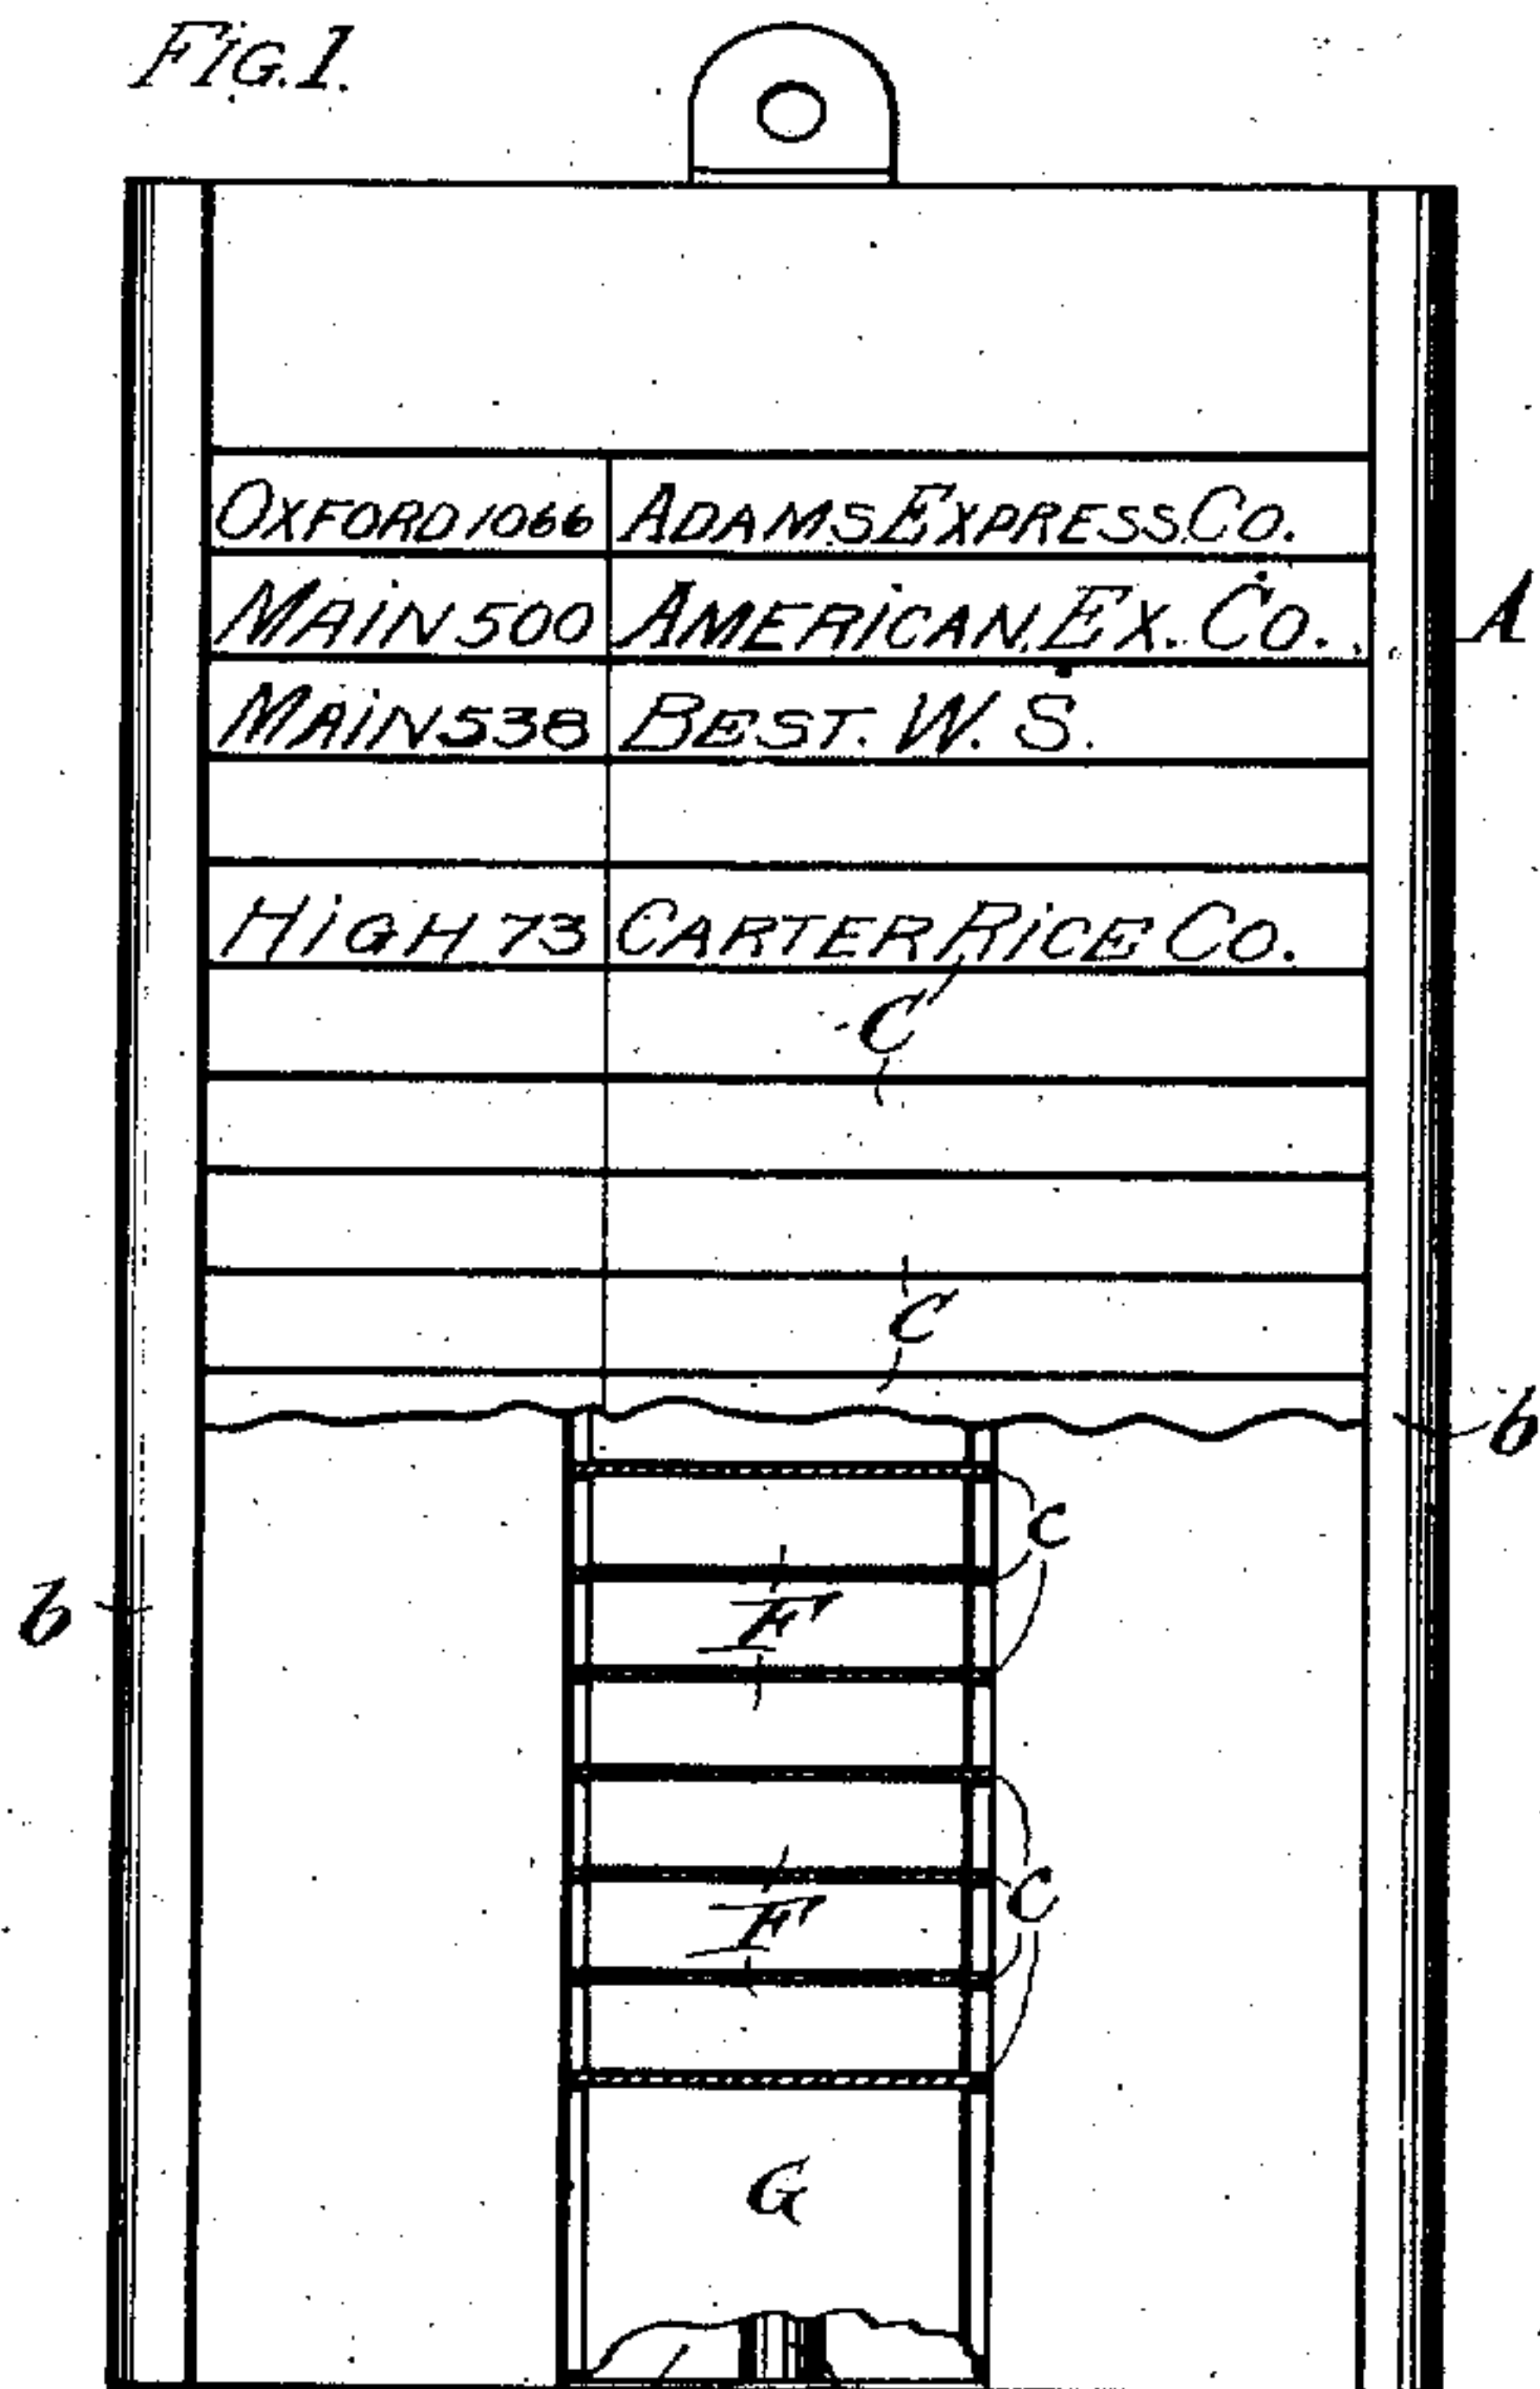 Fig. 1.
OXFORD 1066 ADAMS EXPRESS CO.
MAIN 500 AMERICAN EX. CO.
A
MAIN 538 BEST. W. S.
HIGH 73 CARTER RICE CO.
C
C
b
c
F
b
c
F
G